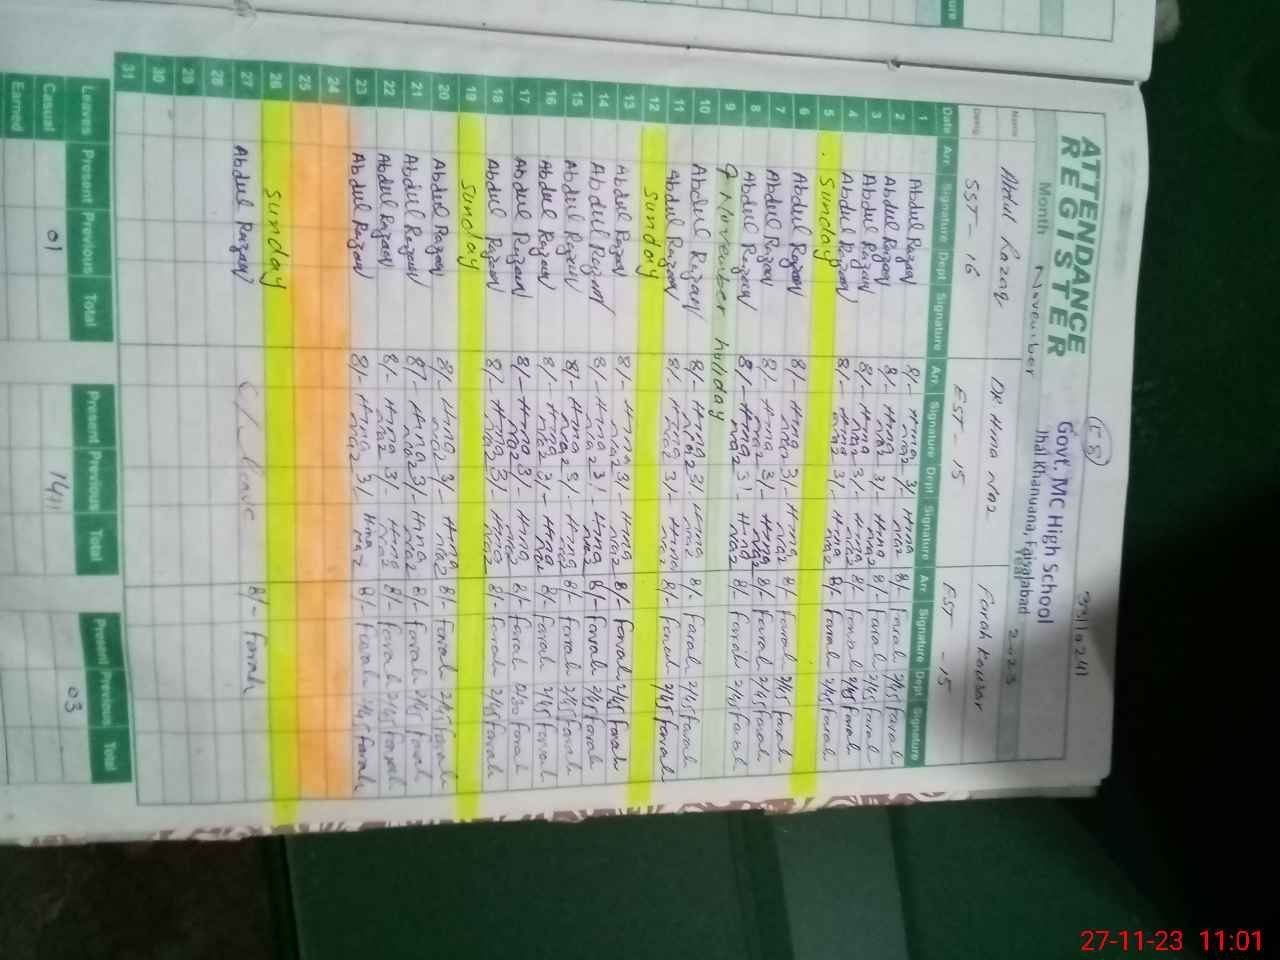 (58)
33110241
ATTENDANCE REGISTER
Govt. MC High School
Jhal Khanuana, Faisalabad
Month November Year 2023
Name Abdul Razaq DR Hina Naz Farah Kousar
Desig SST-16 EST-15 EST-15
Date Arr. Signature Dept Signature Arr. Signature Dept Signature Arr. Signature Dept Signature
1 Abdul Razaq 8/- Hina Naz 3/- Hina Naz 8/- Farah 2/45 Farah
2 Abdul Razaq 8/- Hina Naz 3/- Hina Naz 8/- Farah 2/45 Farah
3 Abdul Razaq 8/- Hina Naz 3/- Hina Naz 8/- Farah 2/45 Farah
4 Abdul Razaq 8/- Hina Naz 3/- Hina Naz 8/- Farah 2/45 Farah
5 Sunday
6 Abdul Razaq 8/- Hina Naz 3/- Hina Naz 8/- Farah 2/45 Farah
7 Abdul Razaq 8/- Hina Naz 3/- Hina Naz 8/- Farah 2/45 Farah
8 Abdul Razaq 8/- Hina Naz 3/- Hina Naz 8/- Farah 2/45 Farah
9 9 November holiday
10 Abdul Razaq 8/- Hina Naz 3/- Hina 8/- Farah 2/45 Farah
11 Abdul Razaq 8/- Hina Naz 3/- Hina Naz 8/- Farah 2/45 Farah
12 Sunday
13 Abdul Razaq 8/- Hina Naz 3/- Hina Naz 8/- Farah 2/45 Farah
14 Abdul Razaq 8/- Hina Naz 3/- Hina Naz 8/- Farah 2/45 Farah
15 Abdul Razaq 8/- Hina Naz 3/- Hina Naz 8/- Farah 2/45 Farah
16 Abdul Razaq 8/- Hina Naz 3/- Hina Naz 8/- Farah 2/45 Farah
17 Abdul Razaq 8/- Hina Naz 3/- Hina Naz 8/- Farah 12/30 Farah
18 Abdul Razaq 8/- Hina Naz 3/- Hina Naz 8/- Farah 2/45 Farah
19 Sunday
20 Abdul Razaq 8/- Hina Naz 3/- Hina Naz 8/- Farah 2/45 Farah
21 Abdul Razaq 8/- Hina Naz 3/- Hina Naz 8/- Farah 2/45 Farah
22 Abdul Razaq 8/- Hina Naz 3/- Hina Naz 8/- Farah 2/45 Farah
23 Abdul Razaq 8/- Hina Naz 3/- Hina Naz 8/- Farah 2/45 Farah
24
25
26 Sunday
27 Abdul Razaq C/Leave 8/- Farah
28
29
30
31
Leaves Present Previous Total Present Previous Total Present Previous Total
Casual 01 14 03
Earned
27-11-23 11:01